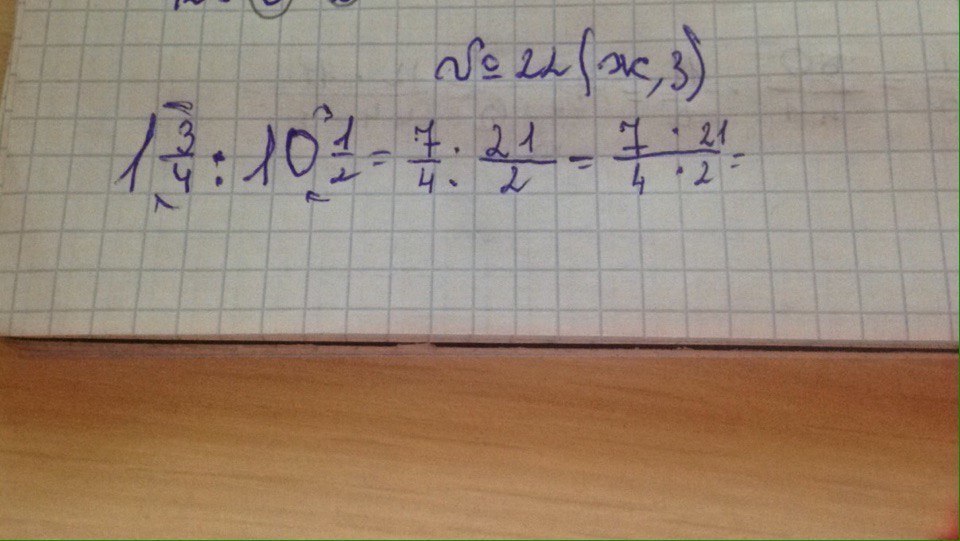 № 22 (ж, з)
1 3/4 : 10 1/2 = 7/4 : 21/2 = 7 · 21/4 · 2 =